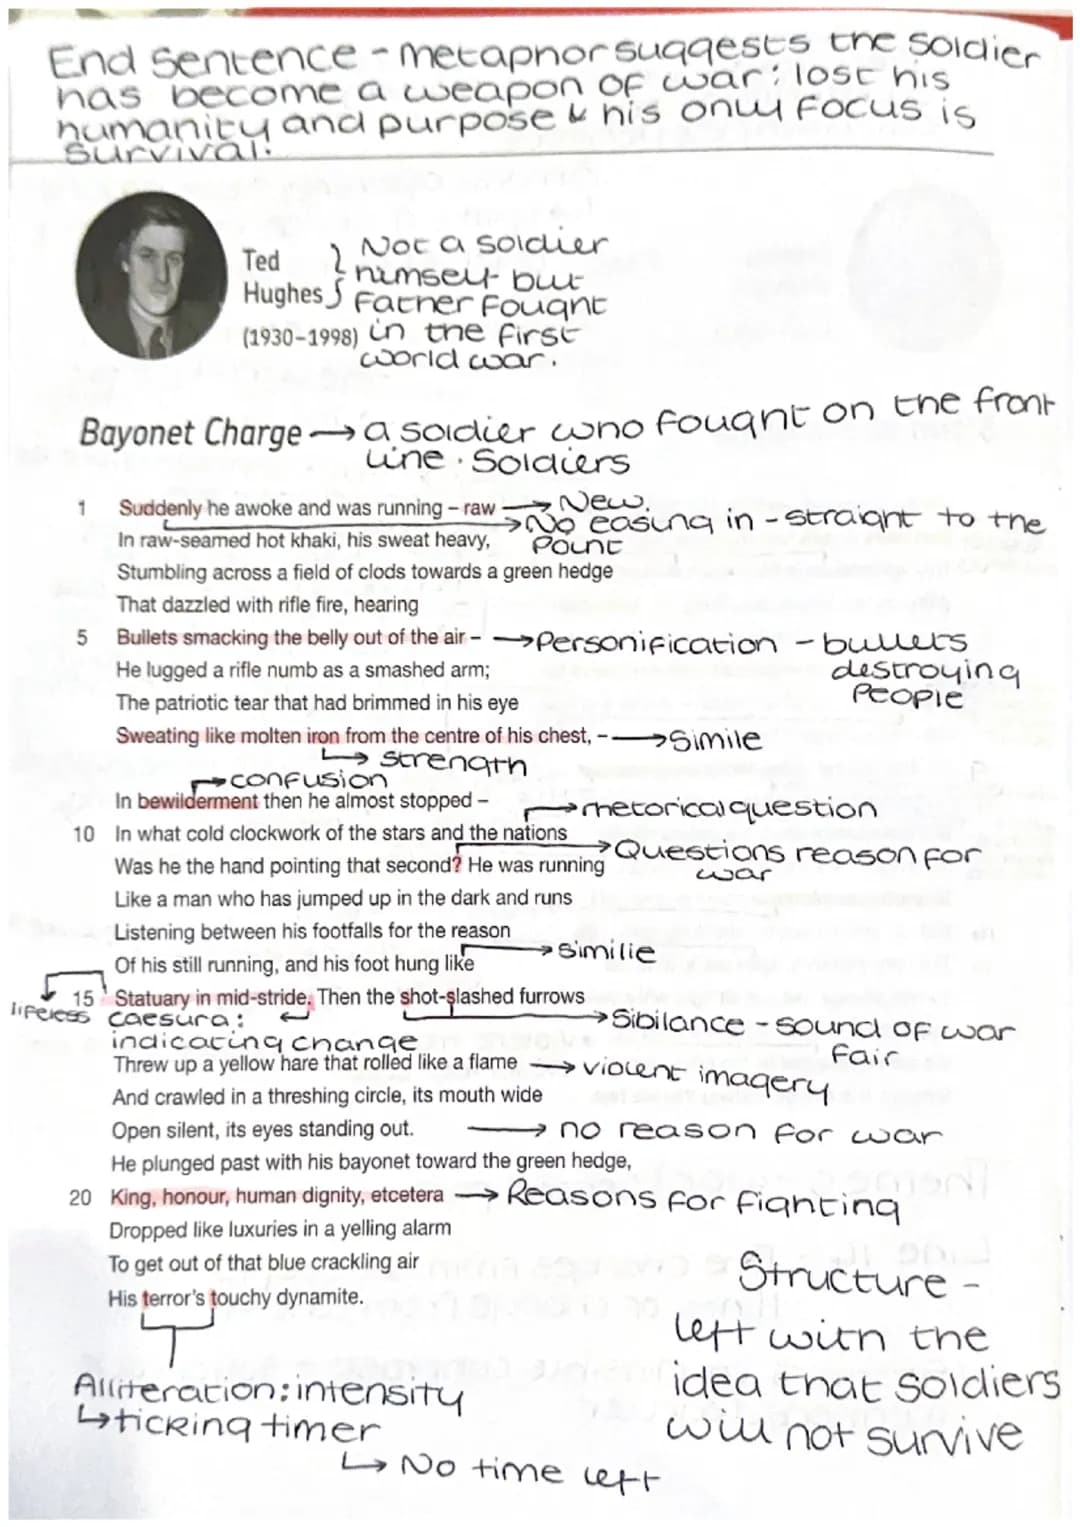 End Sentence - metaphor suggests the soldier
has become a weapon of war: lost his
humanity and purpose & his only focus is
survival.
Ted
Hughes
(1930–1998)
Not a soldier
himself but
Father Fought
in the first
world war.
Bayonet Charge → a soldier who fought on the front
line. Soldiers
1 Suddenly he awoke and was running – raw → New.
→ No easing in - straight to the
In raw-seamed hot khaki, his sweat heavy, point
Stumbling across a field of clods towards a green hedge
That dazzled with rifle fire, hearing
5 Bullets smacking the belly out of the air – → Personification - bullets
destroying
People
He lugged a rifle numb as a smashed arm;
The patriotic tear that had brimmed in his eye
Sweating like molten iron from the centre of his chest, – → Simile
↳ strength
→ confusion
In bewilderment then he almost stopped –
→ rhetorical question
10 In what cold clockwork of the stars and the nations
→ Questions reason for
war
Was he the hand pointing that second? He was running
Like a man who has jumped up in the dark and runs
Listening between his footfalls for the reason
→ similie
Of his still running, and his foot hung like
15 Statuary in mid-stride. Then the shot-slashed furrows
lifeless
caesura:
indicating change
→ Sibilance - sound of war
fair
Threw up a yellow hare that rolled like a flame → violent imagery
And crawled in a threshing circle, its mouth wide
Open silent, its eyes standing out. → no reason for war
He plunged past with his bayonet toward the green hedge,
20 King, honour, human dignity, etcetera → Reasons for fighting
Dropped like luxuries in a yelling alarm
To get out of that blue crackling air
His terror's touchy dynamite.
Structure -
left with the
idea that soldiers
will not survive
Alliteration: intensity
↳ ticking timer
↳ No time left